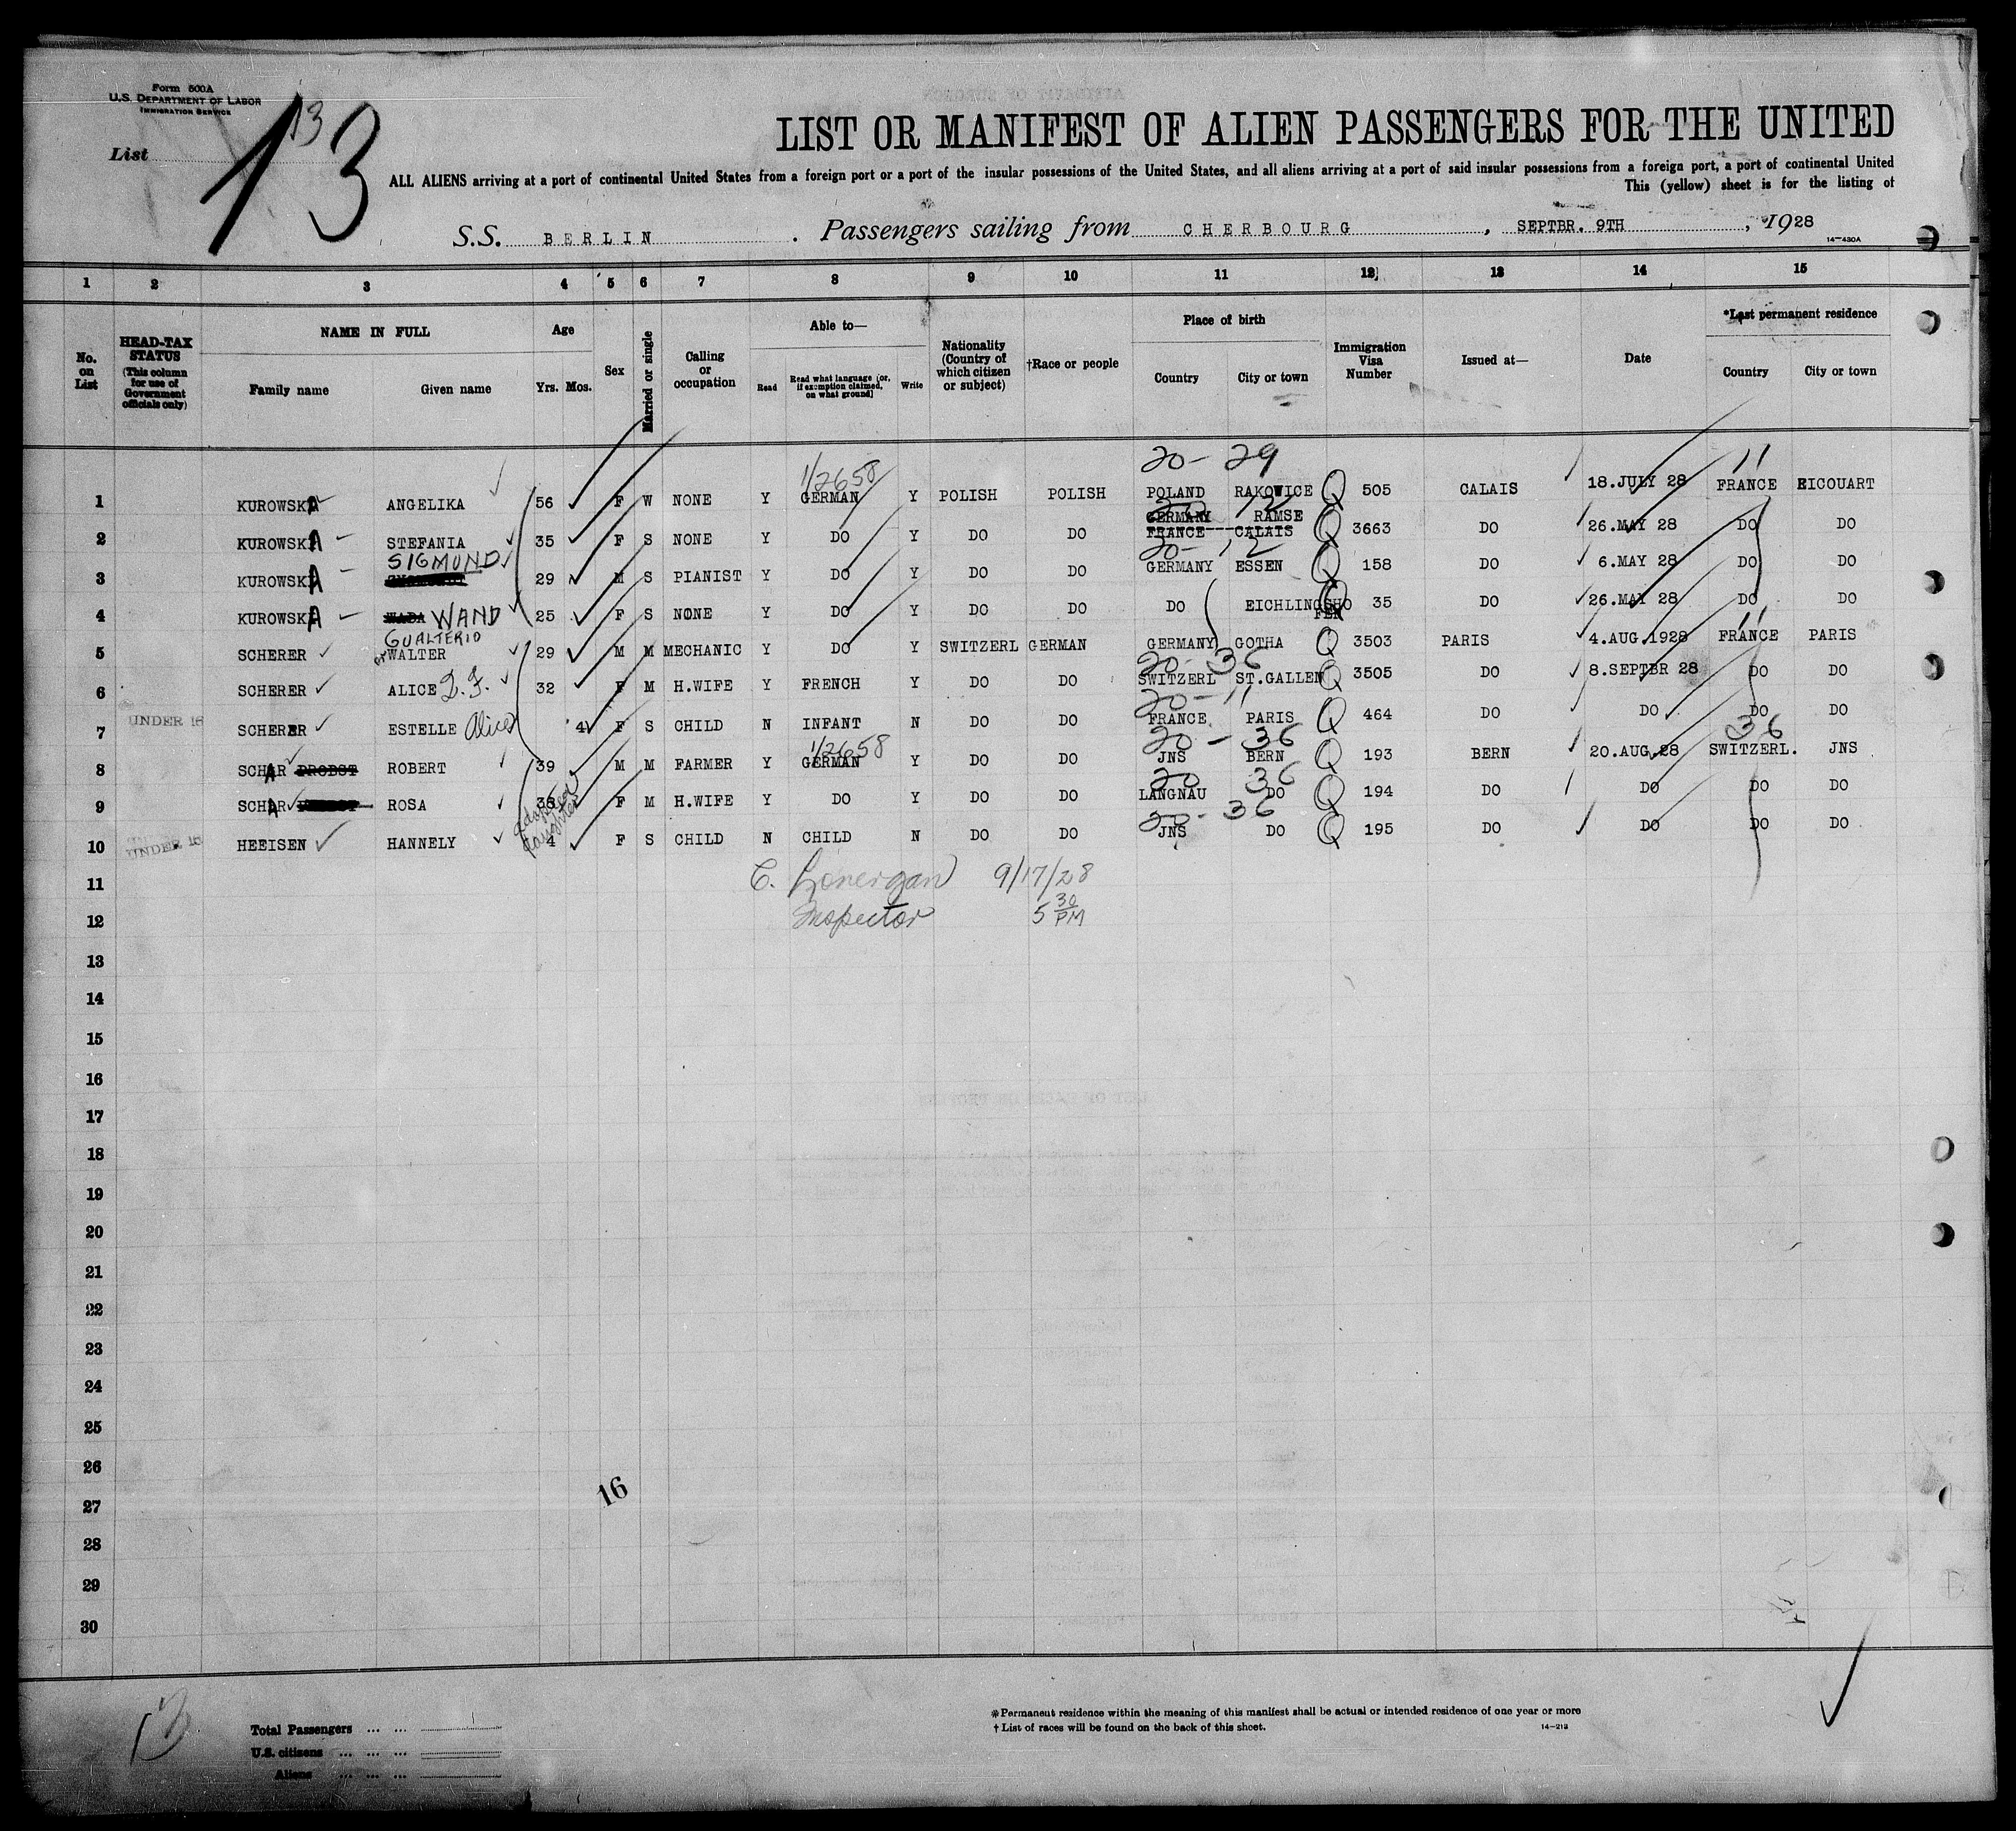 Form 500A
U.S. DEPARTMENT OF LABOR
IMMIGRATION SERVICE
List
13
13
LIST OR MANIFEST OF ALIEN PASSENGERS FOR THE UNITED
ALL ALIENS arriving at a port of continental United States from a foreign port or a port of the insular possessions of the United States, and all aliens arriving at a port of said insular possessions from a foreign port, a port of continental United
This (yellow) sheet is for the listing of
S.S. BERLIN . Passengers sailing from CHERBOURG , SEPTBR. 9TH , 1928
14—430A
1 2 3 4 5 6 7 8 9 10 11 12 13 14 15
No. on List
HEAD-TAX STATUS (This column for use of Government officials only)
NAME IN FULL
Family name Given name
Age
Yrs. Mos.
Sex
Married or single
Calling or occupation
Able to—
Read Read what language [or, if exemption claimed, on what ground] Write
Nationality (Country of which citizen or subject)
†Race or people
Place of birth
Country City or town
Immigration Visa Number
Issued at—
Date
*Last permanent residence
Country City or town
20- 29
1/2658
11
1 KUROWSKA ANGELIKA 56 F W NONE Y GERMAN Y POLISH POLISH POLAND RAKOWICE Q 505 CALAIS 18.JULY 28 FRANCE RICOUART
20 12
GERMANY RAMSE
2 KUROWSKA STEFANIA 35 F S NONE Y DO Y DO DO FRANCE---CALAIS Q 3663 DO 26.MAY 28 DO DO
SIGMUND
20- 12
3 KUROWSKA 29 M S PIANIST Y DO Y DO DO GERMANY ESSEN Q 158 DO 6.MAY 28 DO DO
4 KUROWSKA WADA WAND 25 F S NONE Y DO Y DO DO DO EICHLINGSHO FEN Q 35 DO 26.MAY 28 DO DO
GUALTERIO
11
5 SCHERER or WALTER 29 M M MECHANIC Y DO Y SWITZERL GERMAN GERMANY GOTHA Q 3503 PARIS 4.AUG.1928 FRANCE PARIS
20- 36
6 SCHERER ALICE L.F. 32 F M H.WIFE Y FRENCH Y DO DO SWITZERL ST.GALLEN Q 3505 DO 8.SEPTBR 28 DO DO
20- 11
UNDER 16
7 SCHERER ESTELLE Alice 4 F S CHILD N INFANT N DO DO FRANCE PARIS Q 464 DO DO DO DO
1/2658
20 - 36
36
8 SCHAR PROBST ROBERT 39 M M FARMER Y GERMAN Y DO DO JNS BERN Q 193 BERN 20.AUG.28 SWITZERL. JNS
20 36
9 SCHAR ROSA 38 F M H.WIFE Y DO Y DO DO LANGNAU DO Q 194 DO DO DO DO
adopted daughter
20- 36
UNDER 16
10 HEEISEN HANNELY 4 F S CHILD N CHILD N DO DO JNS DO Q 195 DO DO DO DO
11 C. Lonergan 9/17/28
12 Inspector 5 30 PM
13
14
15
16
17
18
19
20
21
22
23
24
25
26
16
27
28
29
30
13
Total Passengers ... ...
U.S. citizens ... ... ...
Aliens ... ... ...
*Permanent residence within the meaning of this manifest shall be actual or intended residence of one year or more
†List of races will be found on the back of this sheet.
14—213